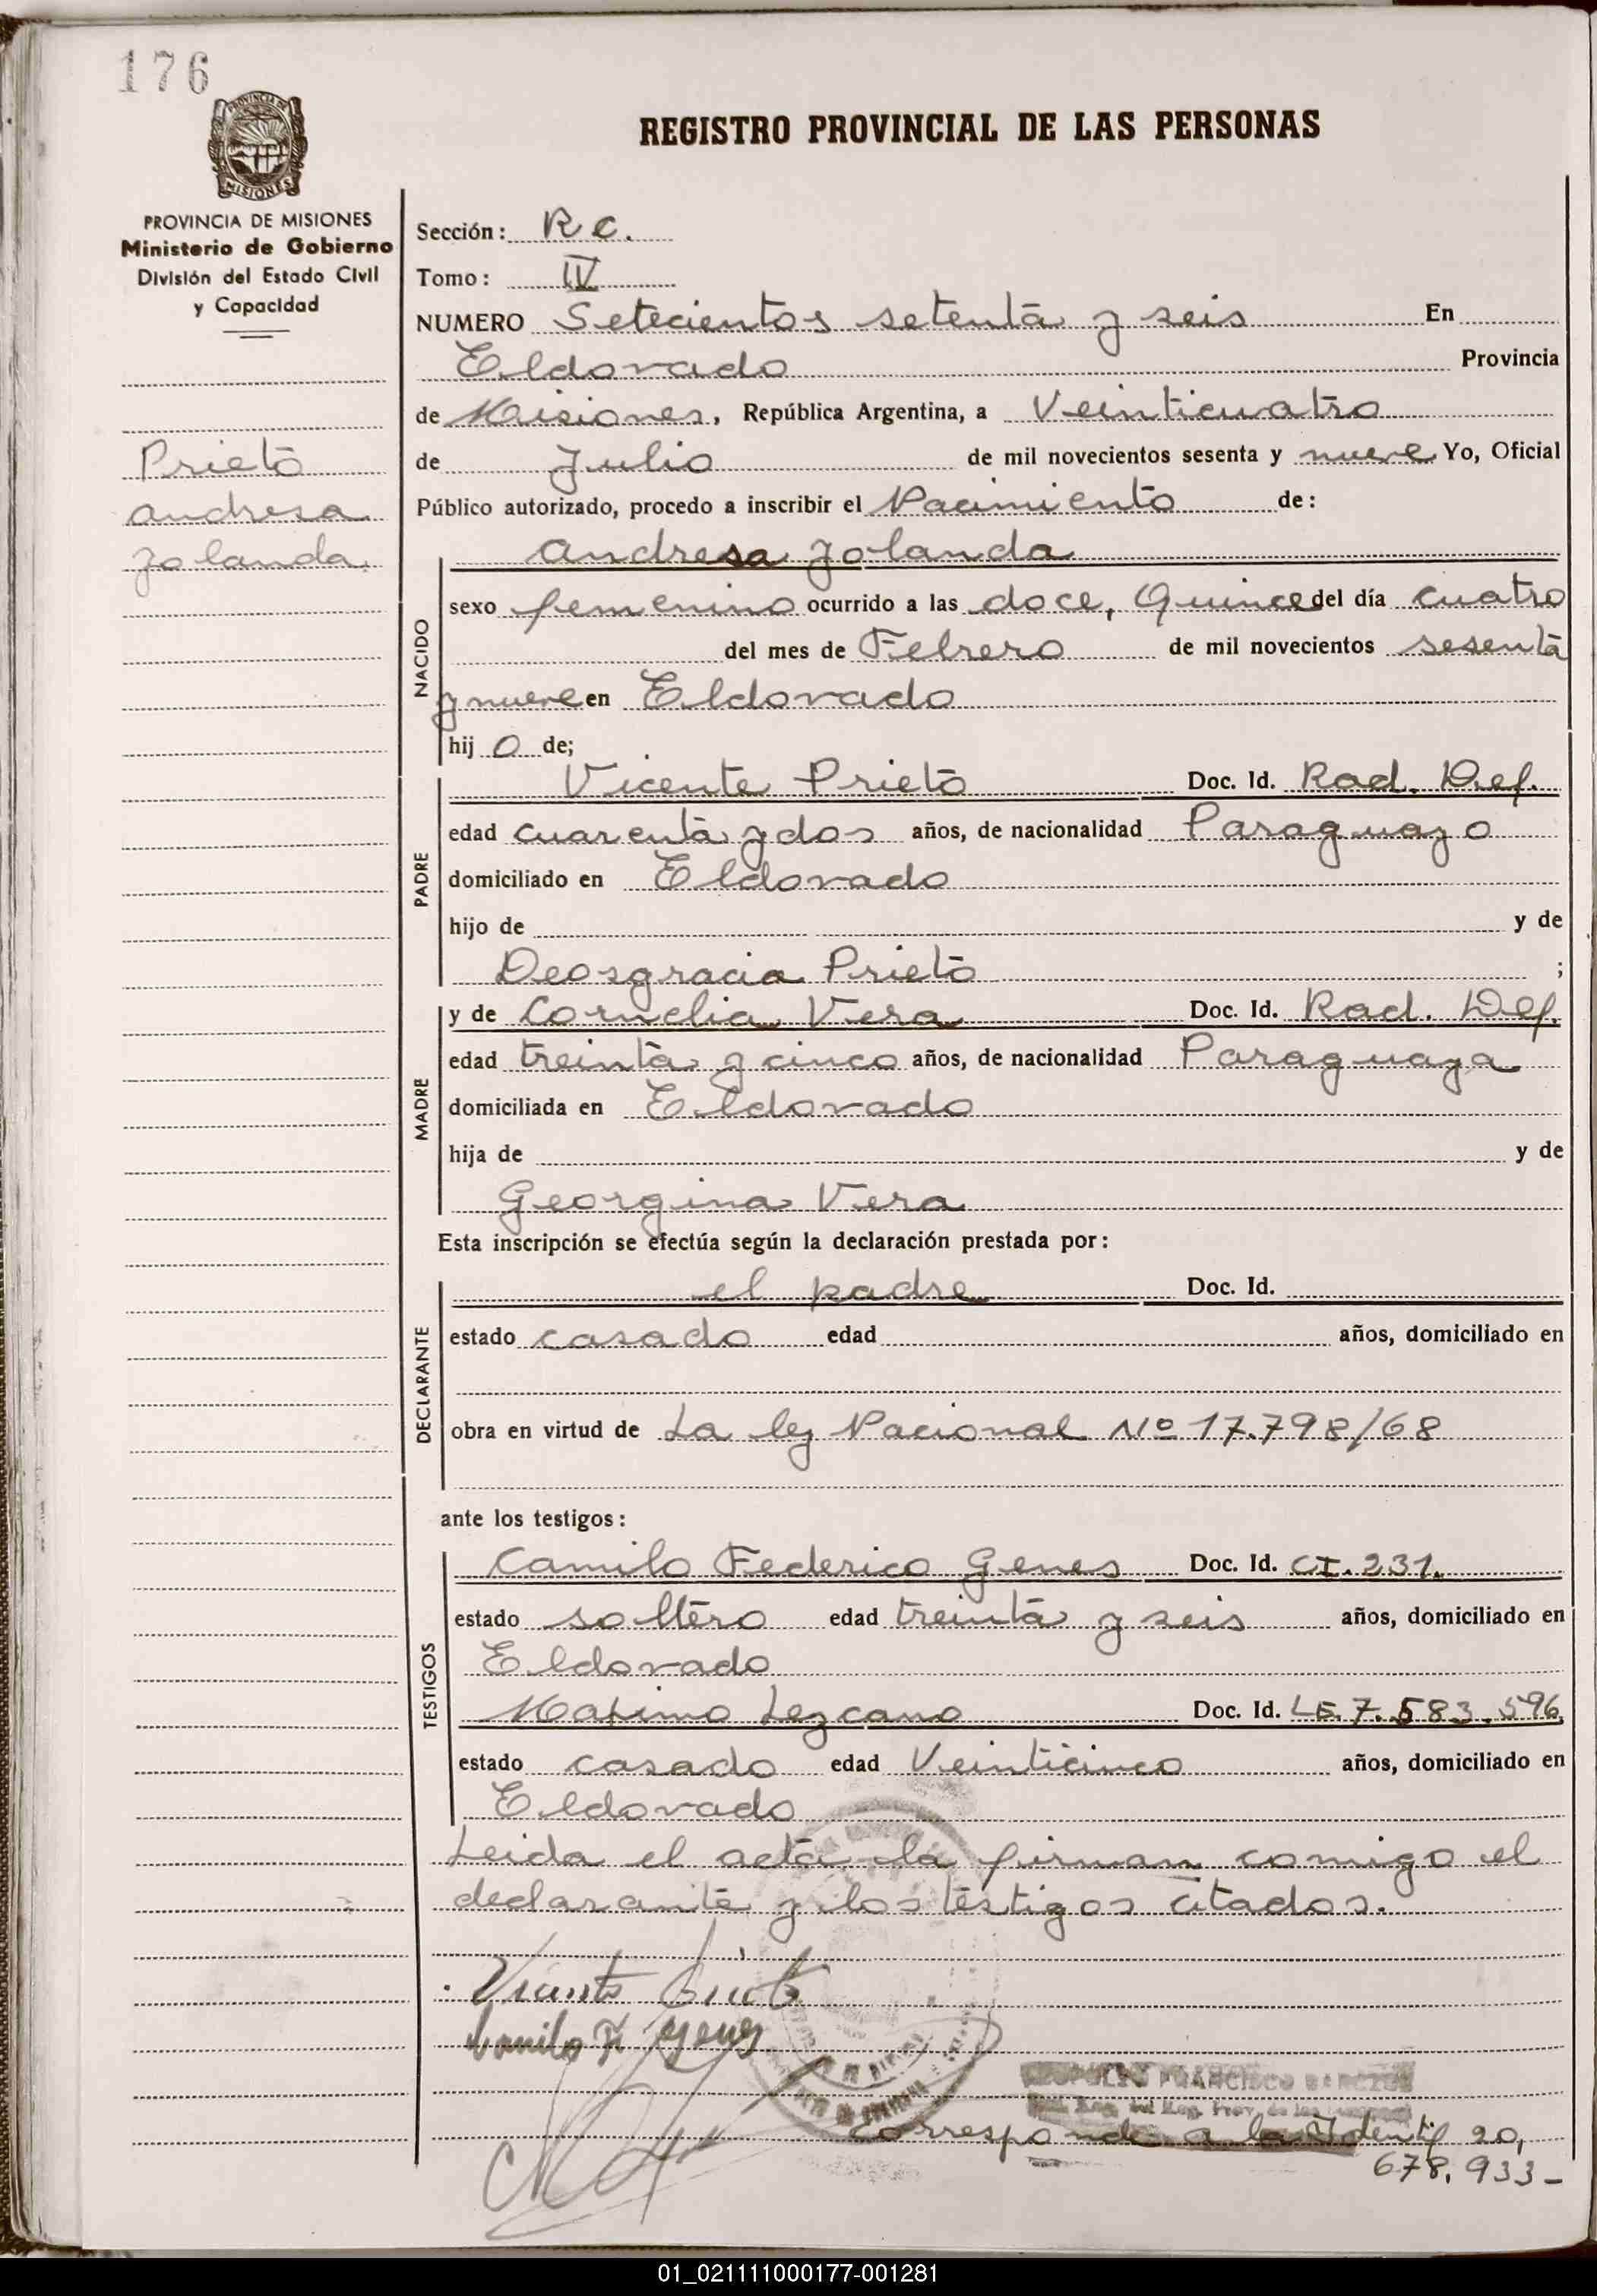 176
PROVINCIA DE
MISIONES
REGISTRO PROVINCIAL DE LAS PERSONAS
PROVINCIA DE MISIONES
Ministerio de Gobierno
División del Estado Civil
y Capacidad
Prieto
Andresa
Yolanda.
Sección: R C.
Tomo: IV
NUMERO Setecientos setenta y seis En
Eldorado Provincia
de Misiones, República Argentina, a Veinticuatro
de Julio de mil novecientos sesenta y nueve Yo, Oficial
Público autorizado, procedo a inscribir el Nacimiento de:
Andresa Yolanda
NACIDO
sexo femenino ocurrido a las doce, Quince del día cuatro
del mes de Febrero de mil novecientos sesenta
y nueve en Eldorado
hij o de;
PADRE
Vicente Prieto Doc. Id. Rad. Def.
edad cuarenta y dos años, de nacionalidad Paraguayo
domiciliado en Eldorado
hijo de y de
Deosgracia Prieto ;
MADRE
y de Cornelia Vera Doc. Id. Rad. Def.
edad treinta y cinco años, de nacionalidad Paraguaya
domiciliada en Eldorado
hija de y de
Georgina Vera
Esta inscripción se efectúa según la declaración prestada por:
DECLARANTE
el padre Doc. Id.
estado casado edad años, domiciliado en
obra en virtud de La ley Nacional Nº 17.798/68
ante los testigos:
TESTIGOS
Camilo Federico Genes Doc. Id. CI. 231.
estado soltero edad treinta y seis años, domiciliado en
Eldorado
Maximo Lezcano Doc. Id. LE. 7. 583. 596,
estado casado edad Veinticinco años, domiciliado en
Eldorado
Leida el acta la firman comigo el
declarante y los testigos citados.
Vicente Prieto
Camilo F. Genes
FRANCISCO
Corresponde a la Identif 20,
678. 933-
01_021111000177-001281